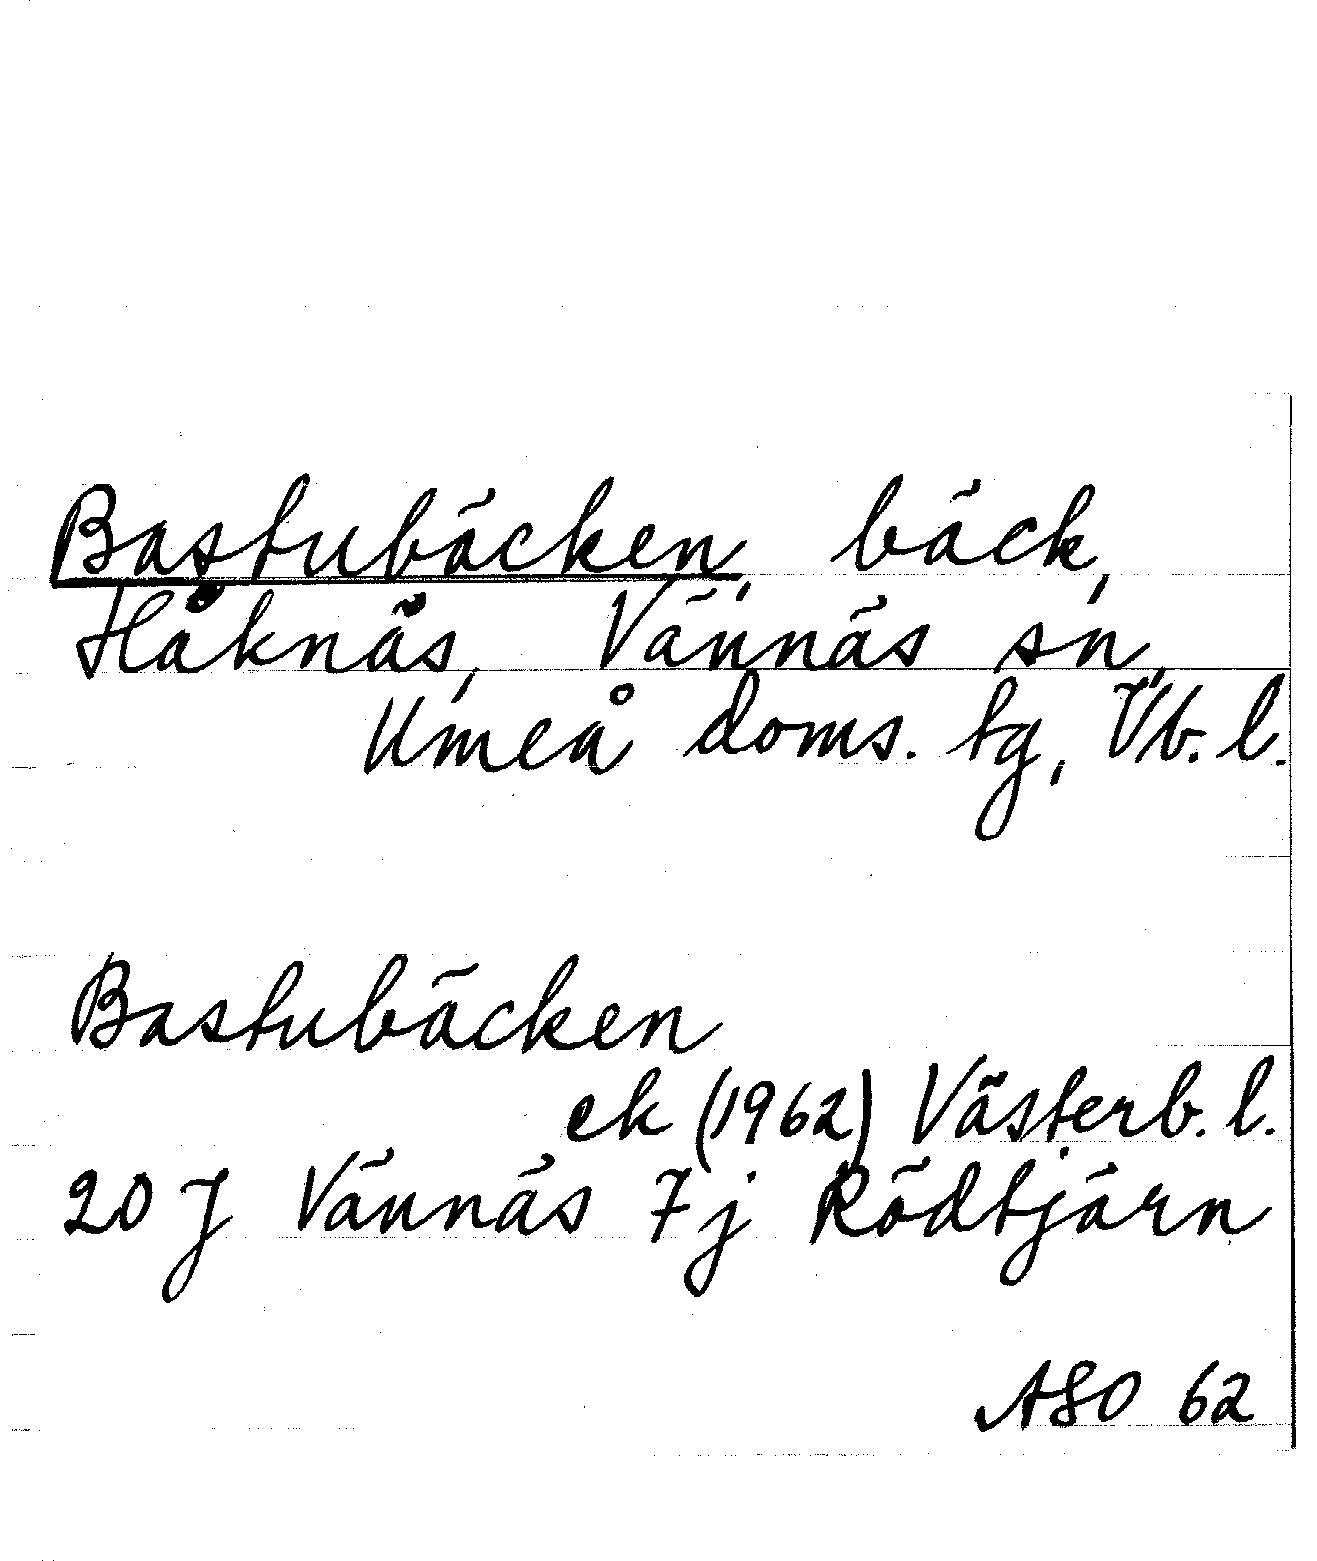 Bastubäcken, bäck,
Håknäs, Vännäs sn,
Umeå doms. tg, Vb. l.
Bastubäcken
ek (1962) Västerb. l.
20 J Vännäs 7j Rödtjärn
ASO 62